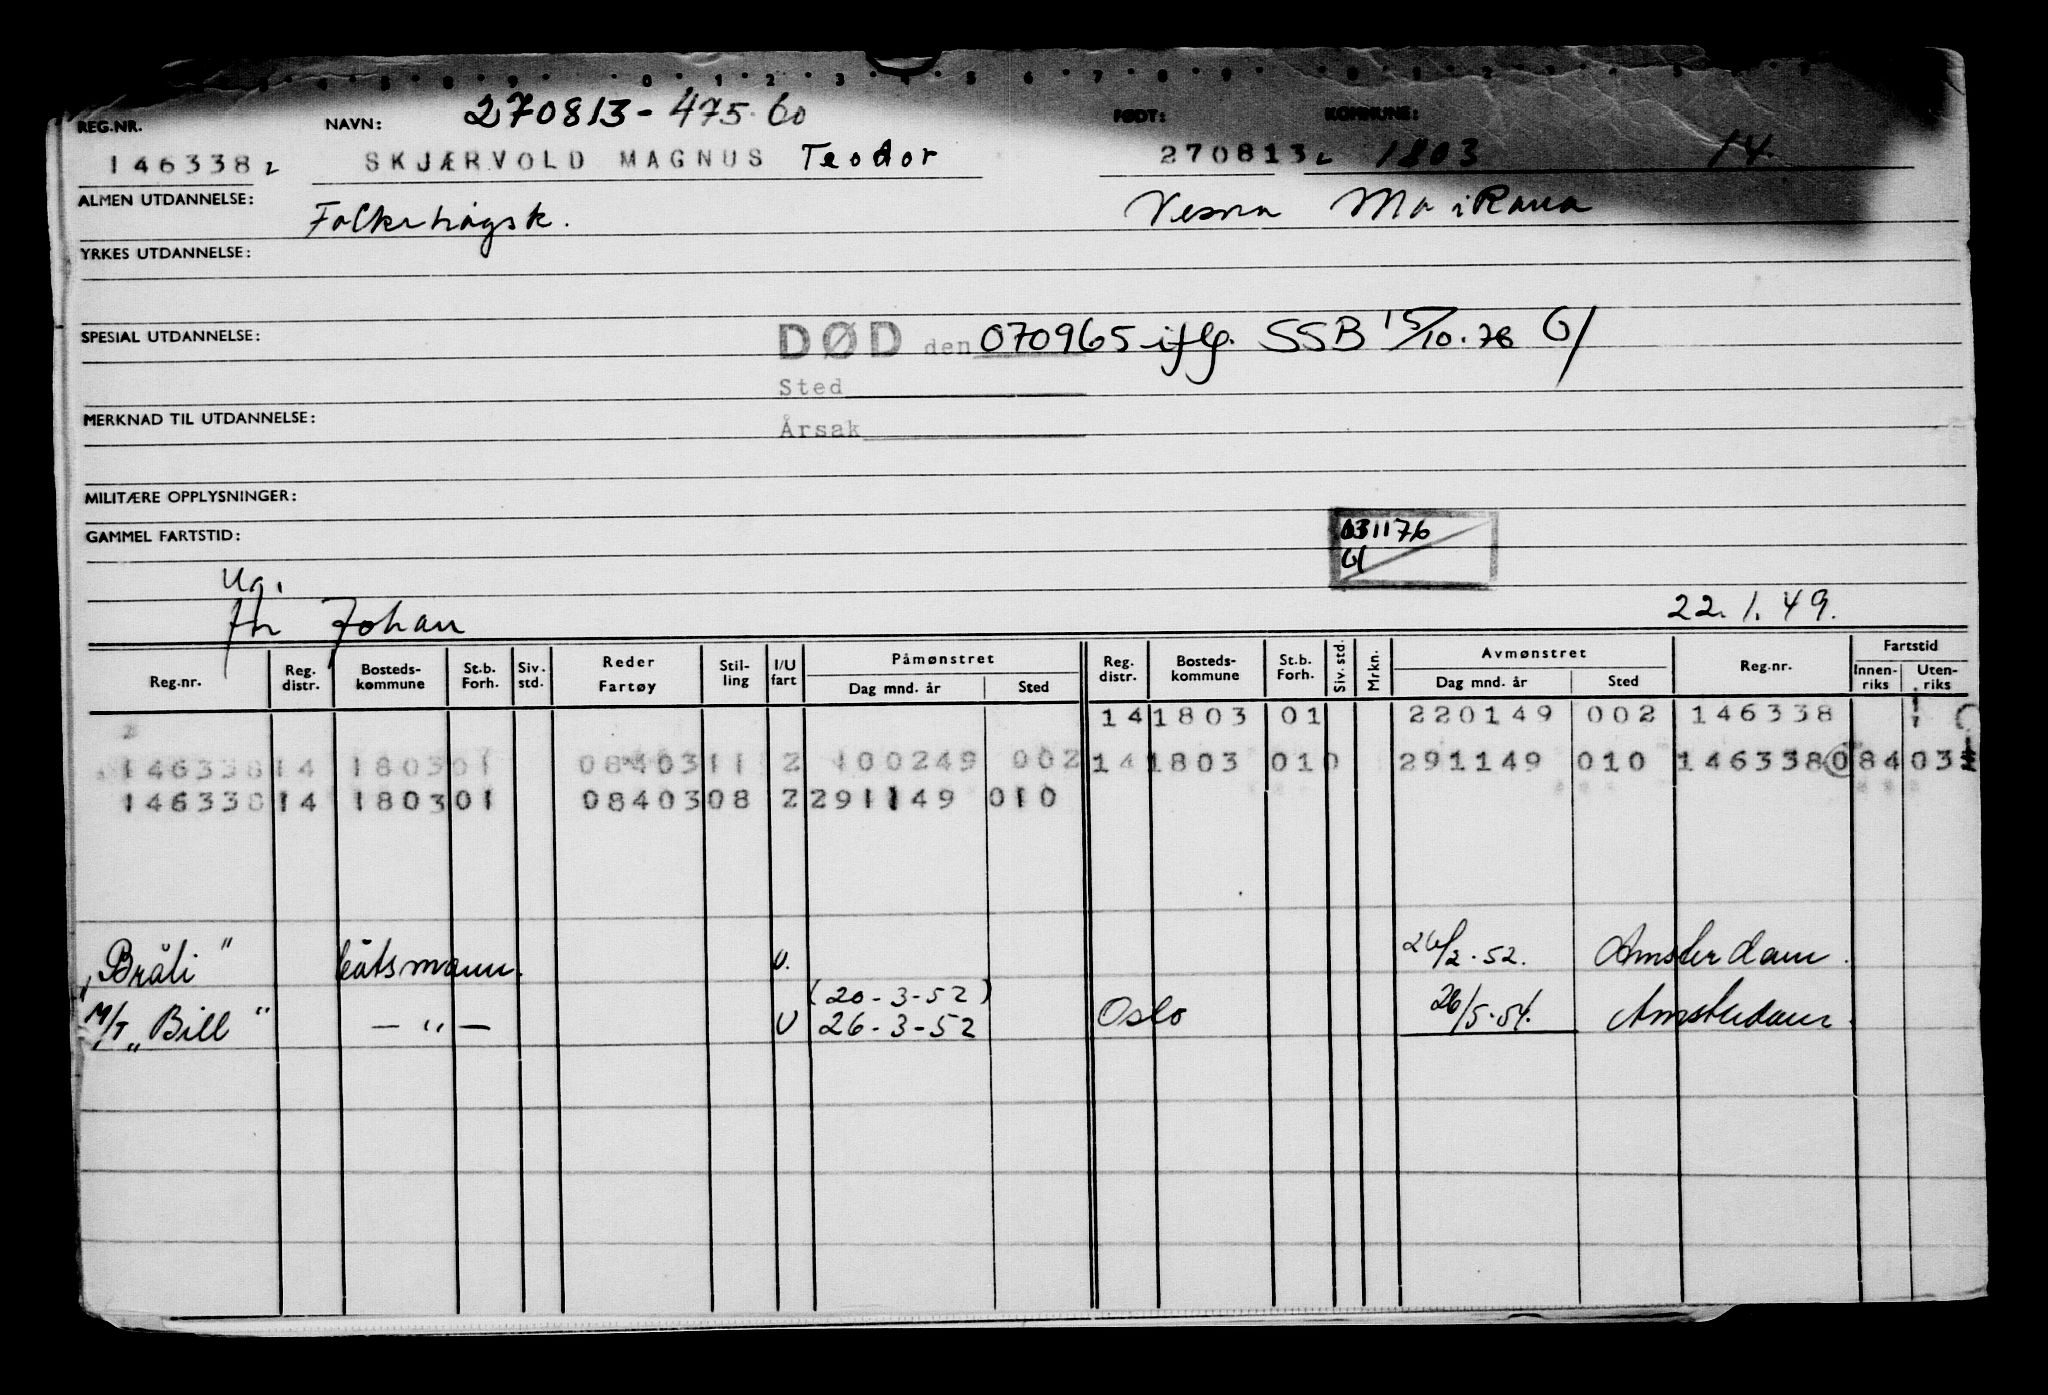 270813-475 60
REG.NR. NAVN: FØDT: KOMMUNE:
146338 2 SKJÆRVOLD MAGNUS Teodor 270813 2 1803 14.
ALMEN UTDANNELSE: Folkehøgsk. Mo i Rana
YRKES UTDANNELSE:
SPESIAL UTDANNELSE: DØD den 070965 iflg. SSB 15/10.76 G/
Sted
MERKNAD TIL UTDANNELSE: Årsak
MILITÆRE OPPLYSNINGER:
GAMMEL FARTSTID: 031176
G/
Ug.
fn Johan 22.1.49.
Reg.nr. Reg. distr. Bosteds- kommune St.b. Forh. Siv. std. Reder Fartøy Stil- ling I/U fart Påmønstret Dag mnd. år Sted Reg. distr. Bosteds- kommune St.b. Forh. Siv. std. Mrkn. Avmønstret Dag mnd. år Sted Reg.nr. Fartstid Innen- riks Uten- riks
14 1803 01 220149 002 146338
146338 14 1803 01 084031 1 2 100249 002 14 1803 010 291149 010 146338 0 84 03
146338 14 1803 01 084030 8 2 291149 010
"Bråli" båtsmann. U. 26/2-52. Amsterdam.
(20-3-52)
M/T "Bill" — " — U 26-3-52 Oslo 26/5-54. Amsterdam.